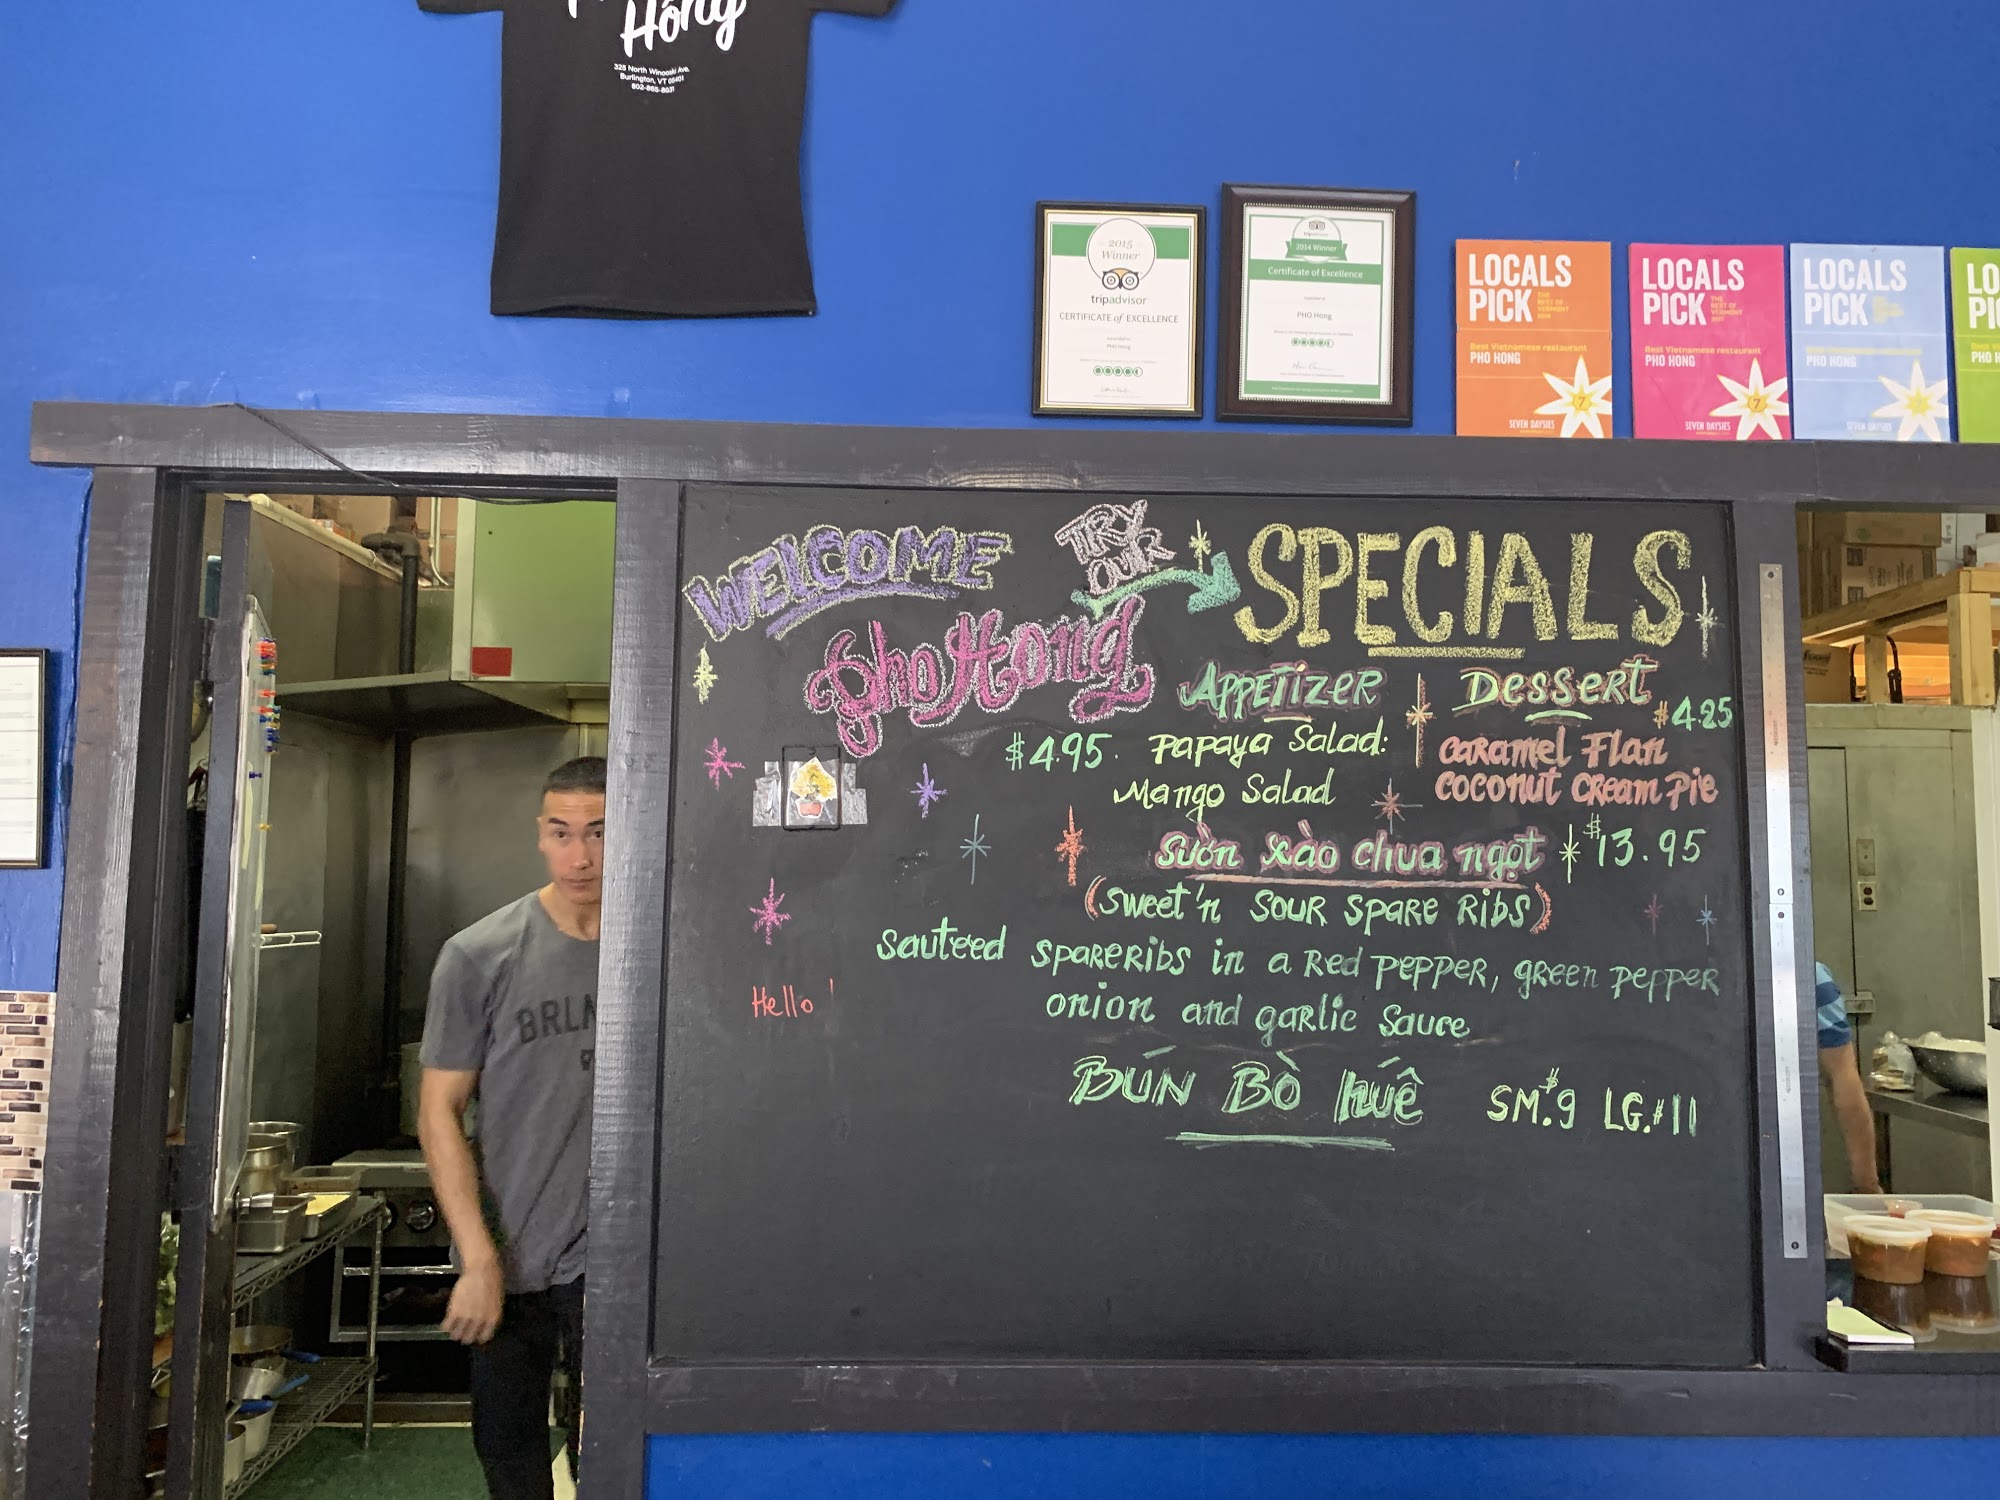 Hồng
325 North Winooski Ave.
Burlington, VT 05401
802-865-8031
2015
Winner
tripadvisor
CERTIFICATE of EXCELLENCE
awarded to
PHO Hong
tripadvisor
2014 Winner
Certificate of Excellence
awarded to
PHO Hong
LOCALS
PICK
THE
BEST OF
VERMONT
Best Vietnamese restaurant
PHO HONG
7
SEVEN DAYSIES
LOCALS
PICK
THE
BEST OF
VERMONT
2017
Best Vietnamese restaurant
PHO HONG
7
SEVEN DAYSIES
LOCALS
PICK
PHO HONG
SEVEN DAYSIES
PHO H
WELCOME
Pho Hong
TRY
OUR
SPECIALS
Appetizer
$4.95. Papaya Salad:
Mango Salad
Dessert
$4.25
Caramel Flan
Coconut Cream Pie
Sườn xào chua ngọt $13.95
(Sweet'n Sour Spare Ribs)
Sauteed spareribs in a Red pepper, green pepper
onion and garlic sauce
Hello!
BÚN BÒ HUẾ SM.$9 LG.$11
BRLN